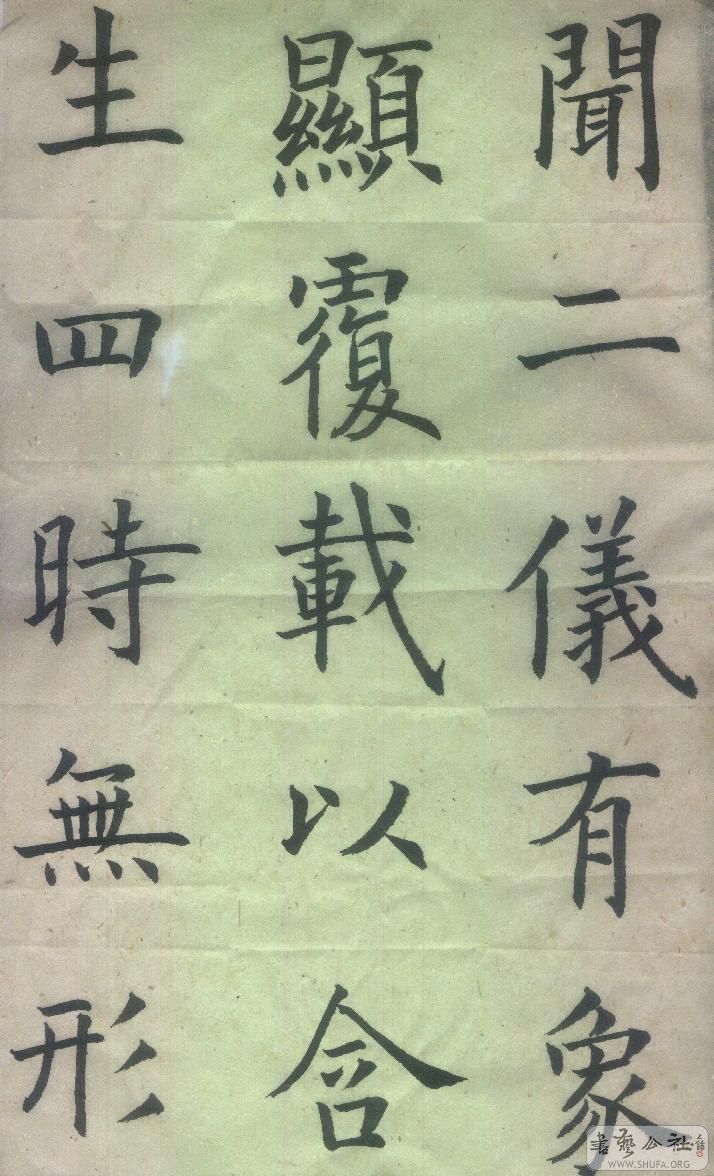 聞二儀有象
顯覆載以含
生四時無形
書藝公社
WWW.SHUFA.ORG